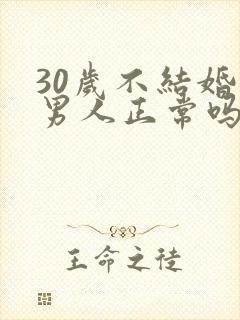 30歲不結婚
男人正常吗
王命之徒